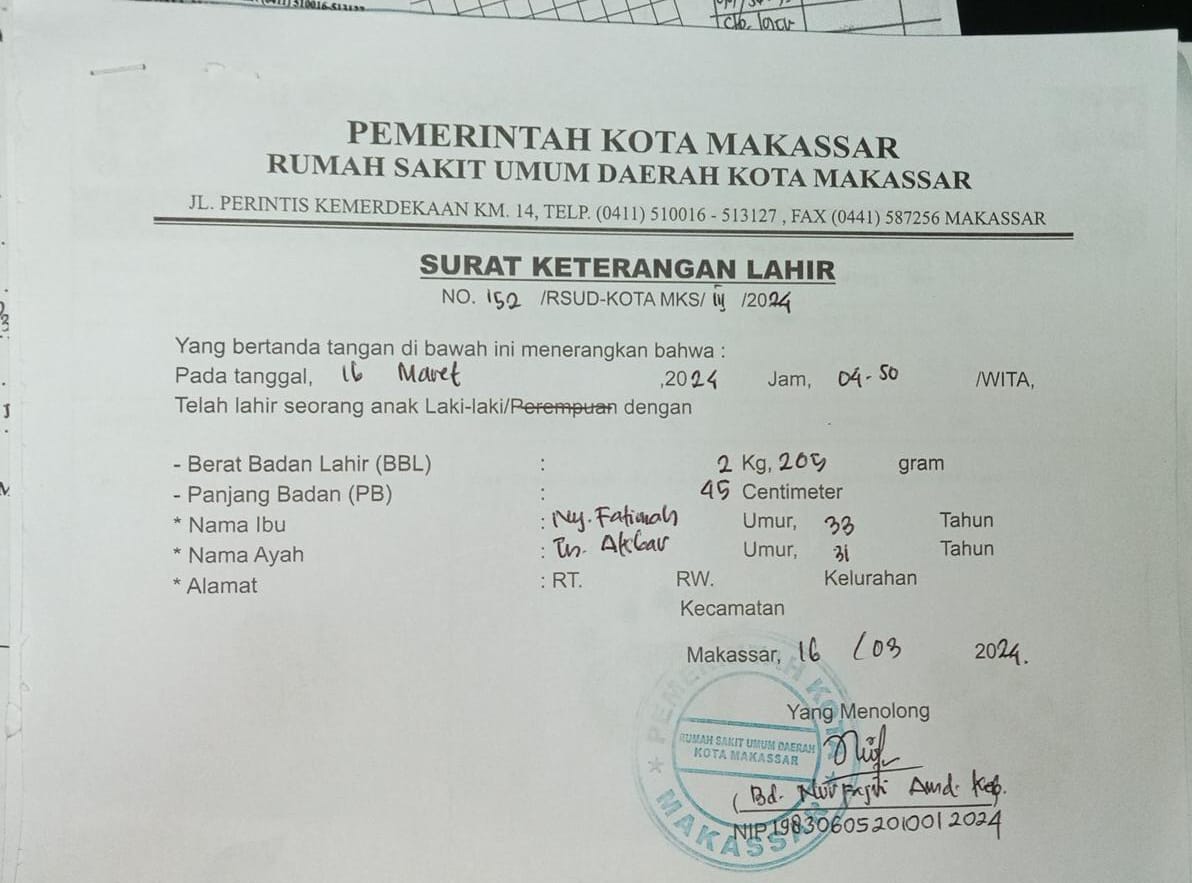 (0411) 510016-513127
Tab. laar
PEMERINTAH KOTA MAKASSAR
RUMAH SAKIT UMUM DAERAH KOTA MAKASSAR
JL. PERINTIS KEMERDEKAAN KM. 14, TELP. (0411) 510016 - 513127 , FAX (0441) 587256 MAKASSAR
SURAT KETERANGAN LAHIR
NO. 152 /RSUD-KOTA MKS/ III /2024
Yang bertanda tangan di bawah ini menerangkan bahwa :
Pada tanggal, 16 Maret ,2024 Jam, 04-50 /WITA,
Telah lahir seorang anak Laki-laki/Perempuan dengan
- Berat Badan Lahir (BBL) : 2 Kg, 205 gram
- Panjang Badan (PB) : 45 Centimeter
* Nama Ibu : Ny. Fatimah Umur, 33 Tahun
* Nama Ayah : Tn. Akbar Umur, 31 Tahun
* Alamat : RT. RW. Kelurahan
Kecamatan
Makassar, 16 /03 2024.
Yang Menolong
PEMERINTAH KOTA
RUMAH SAKIT UMUM DAERAH
KOTA MAKASSAR
MAKASSAR
( Bd. Nur Amd. Keb.
NIP.198306052010012024